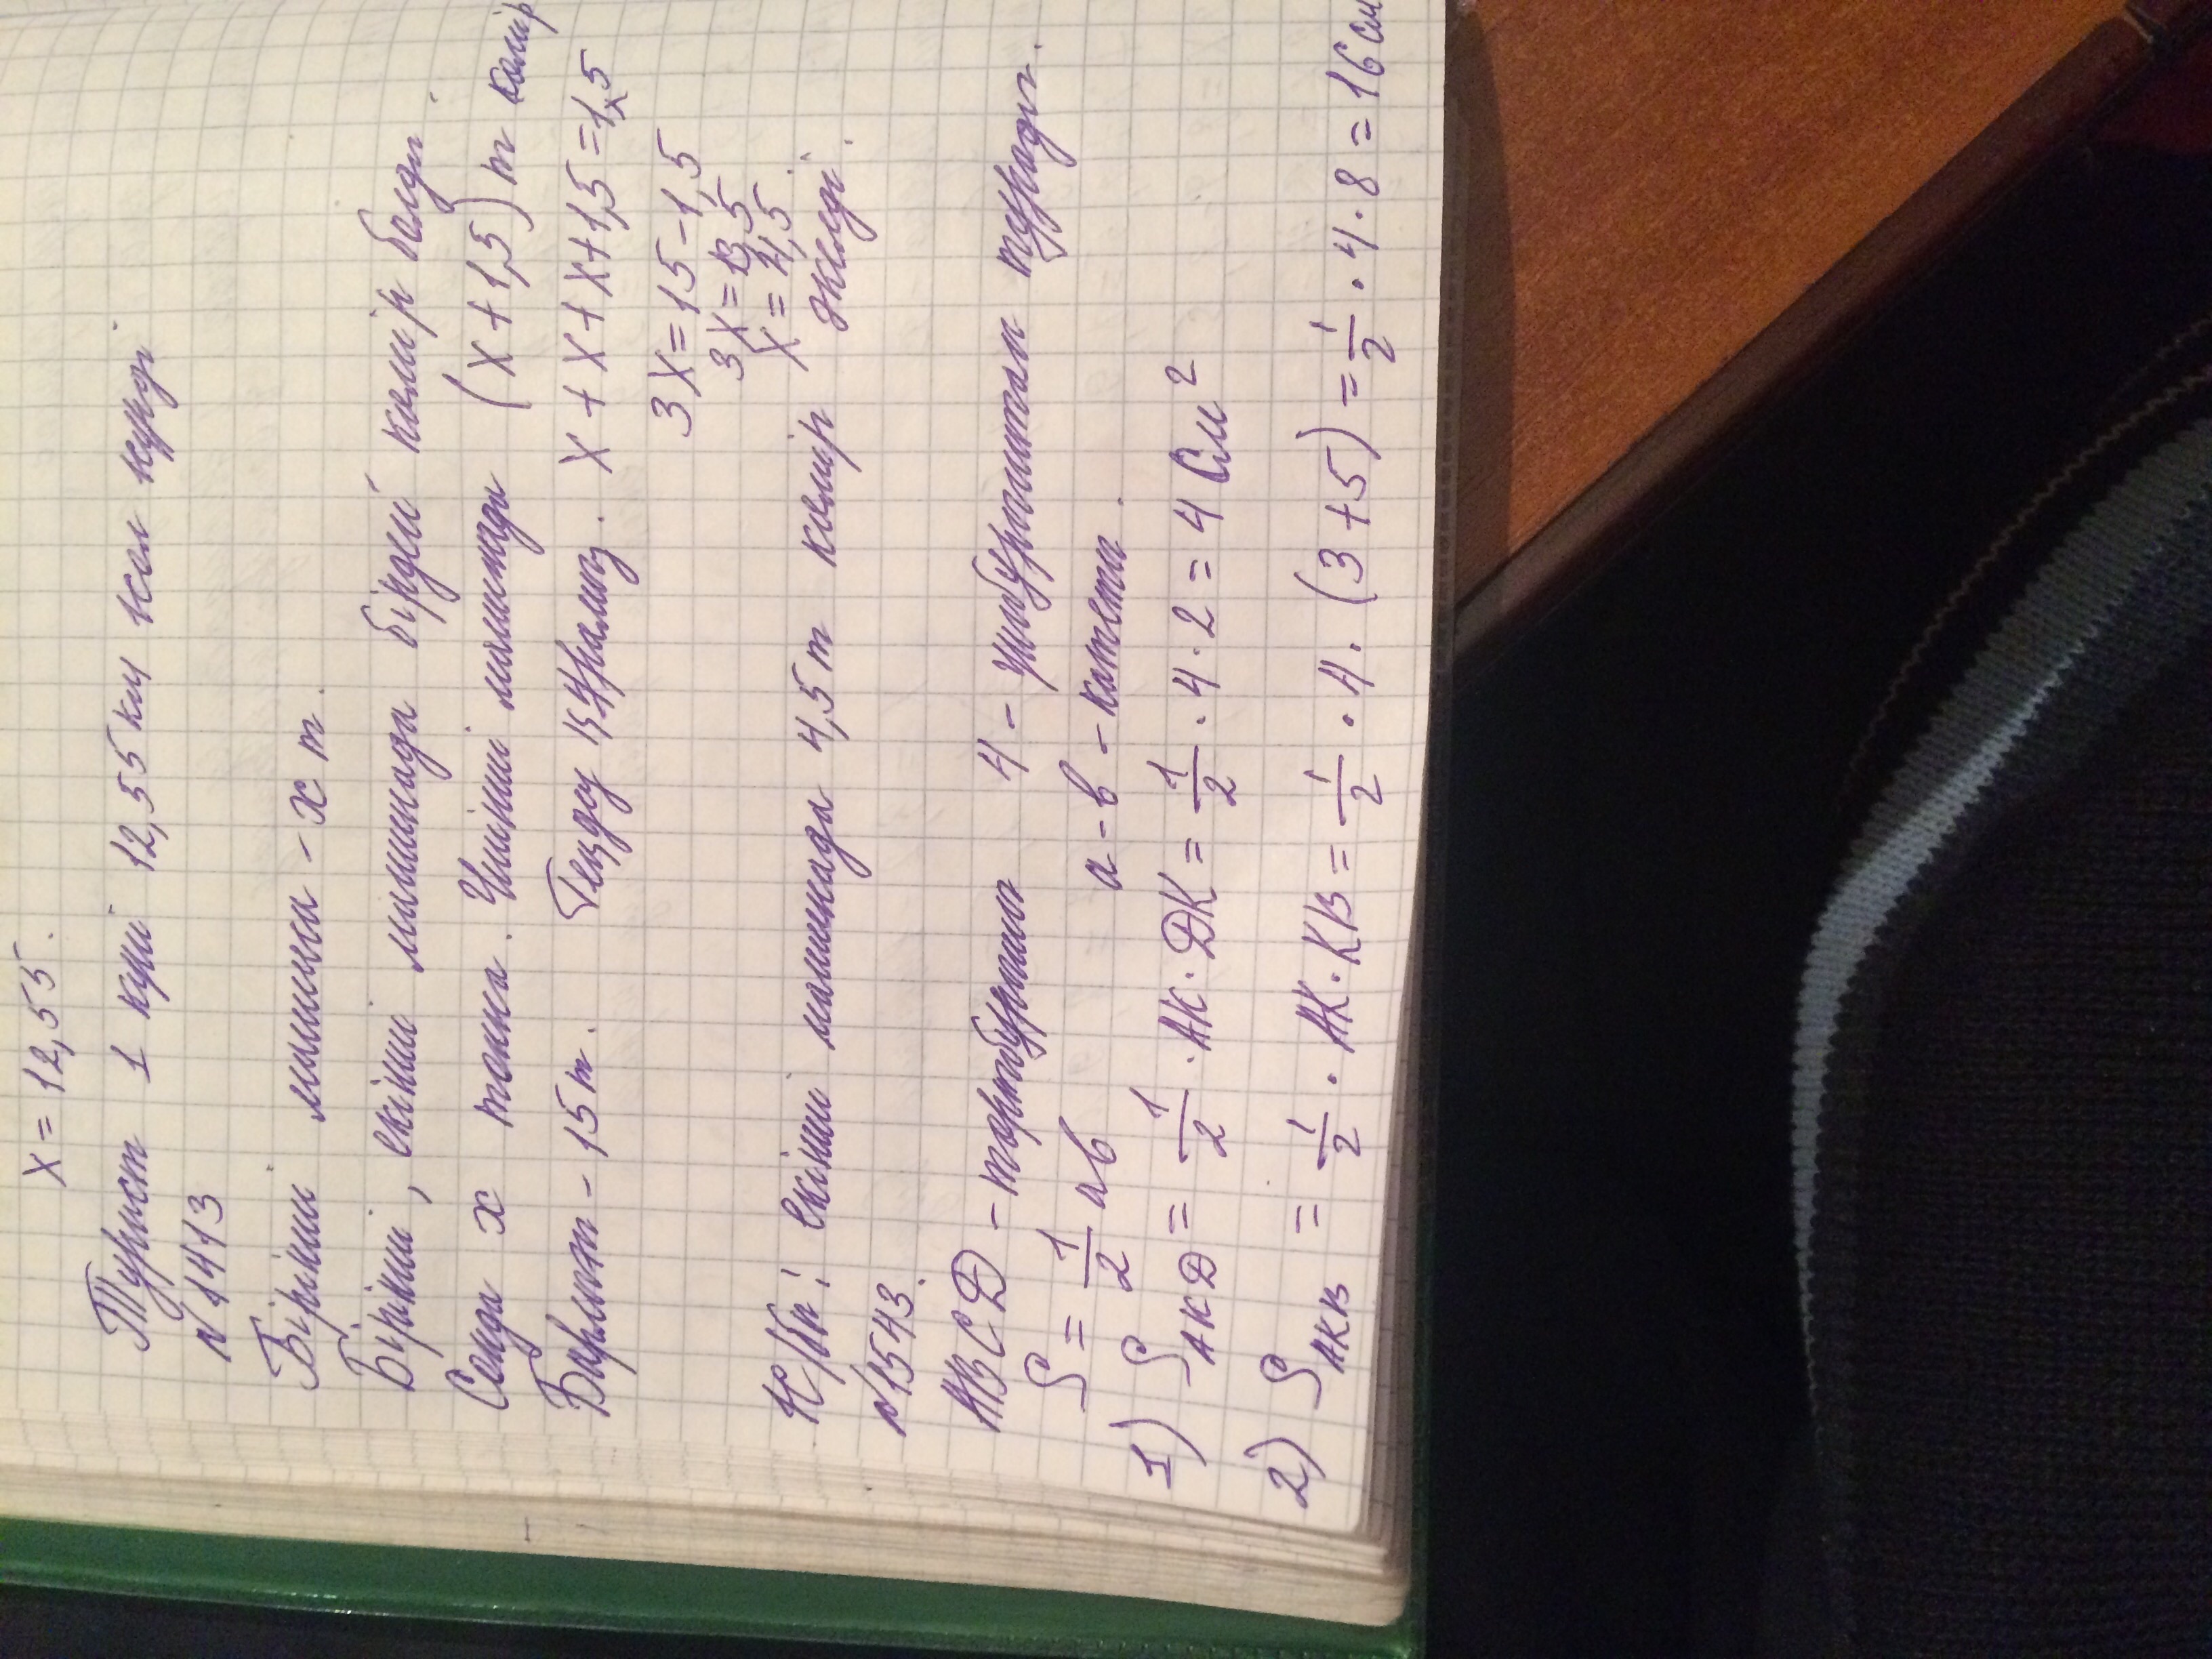 х = 12,55.
Турист 1 күні 12,55 км жол жүрді
№1413
Бірінші машина - х т.
Бірінші, екінші машинада бірдей көмір болды.
Сонда х тонна. Үшінші машинада (х + 1,5) т көмір
Барлығы - 15 т. Теңдеу құрамыз. х + х + х + 1,5 = 15
х
3х = 15 - 1,5
3х = 13,5
х = 4,5
Ж/бы: екінші машинада 4,5 т көмір әкелді.
№1543.
АВСД - төртбұрыш 4 - үшбұрыштан тұрады.
S = 1/2 ав а - в - катеты.
1) S АКД = 1/2 · АК · ДК = 1/2 · 4 · 2 = 4 см²
2) S АКВ = 1/2 · АК · КВ = 1/2 · 4 · (3 + 5) = 1/2 · 4 · 8 = 16 см